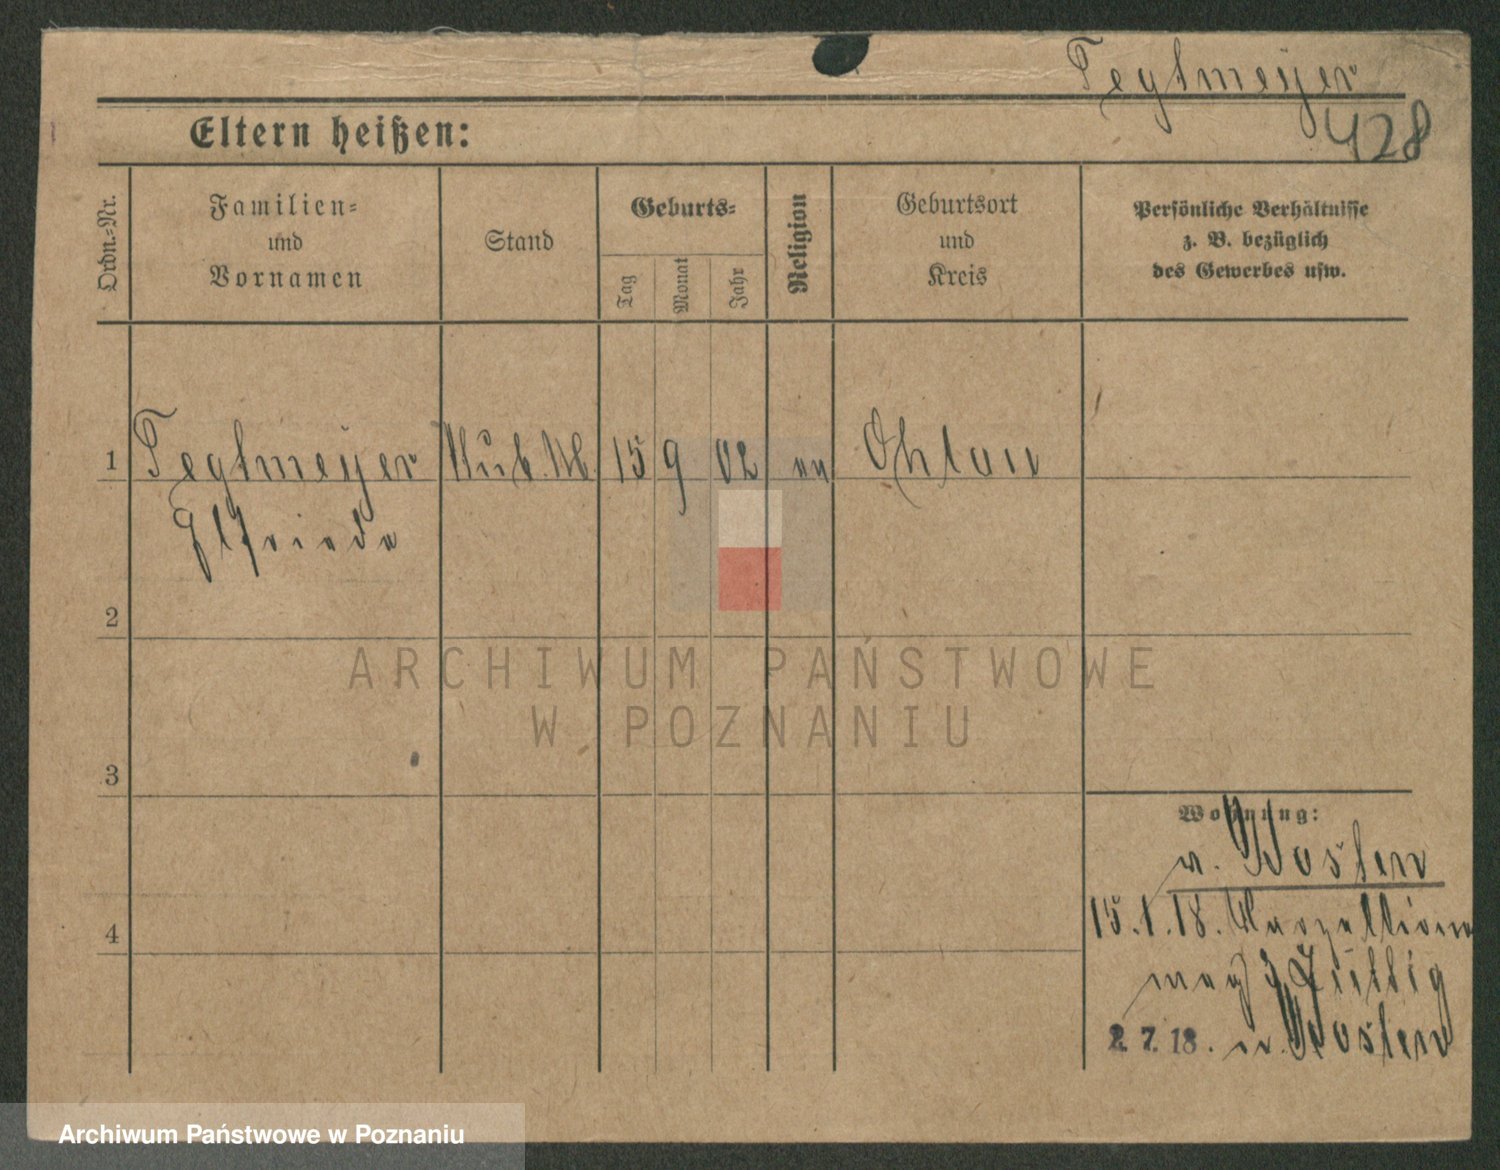 Tegtmeyer
428
Eltern heißen:
Ordn.-Nr.
Familien-
und
Vornamen
Stand
Geburts-
Tag
Monat
Jahr
Religion
Geburtsort
und
Kreis
Persönliche Verhältnisse
z. B. bezüglich
des Gewerbes usw.
1
Tegtmeyer
15
9
02
ev
Ohlau
Elfriede
2
ARCHIWUM PAŃSTWOWE
W POZNANIU
3
Wohnung:
v. Posen
15.1.18.
4
nach
2. 7. 18. v. Posen
Archiwum Państwowe w Poznaniu